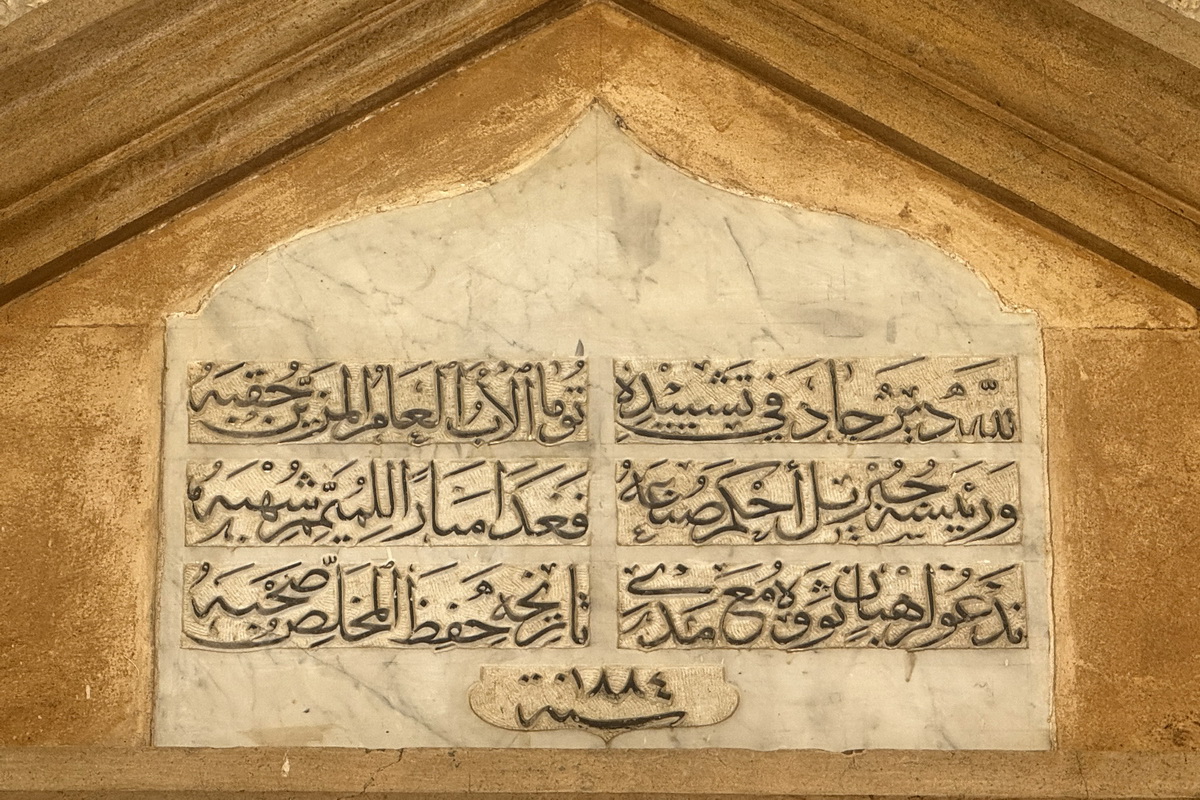 لله دير جاد في تشييده توما الأب العام المزين حقبه
ورئيسه جبر بل أحكم صنعه فغدا منارا للميتمم شهبه
ندعو لرهبان ثووه مع مدى تاريخه حفظ المخلص صحبه
سنة ١٨٨٤